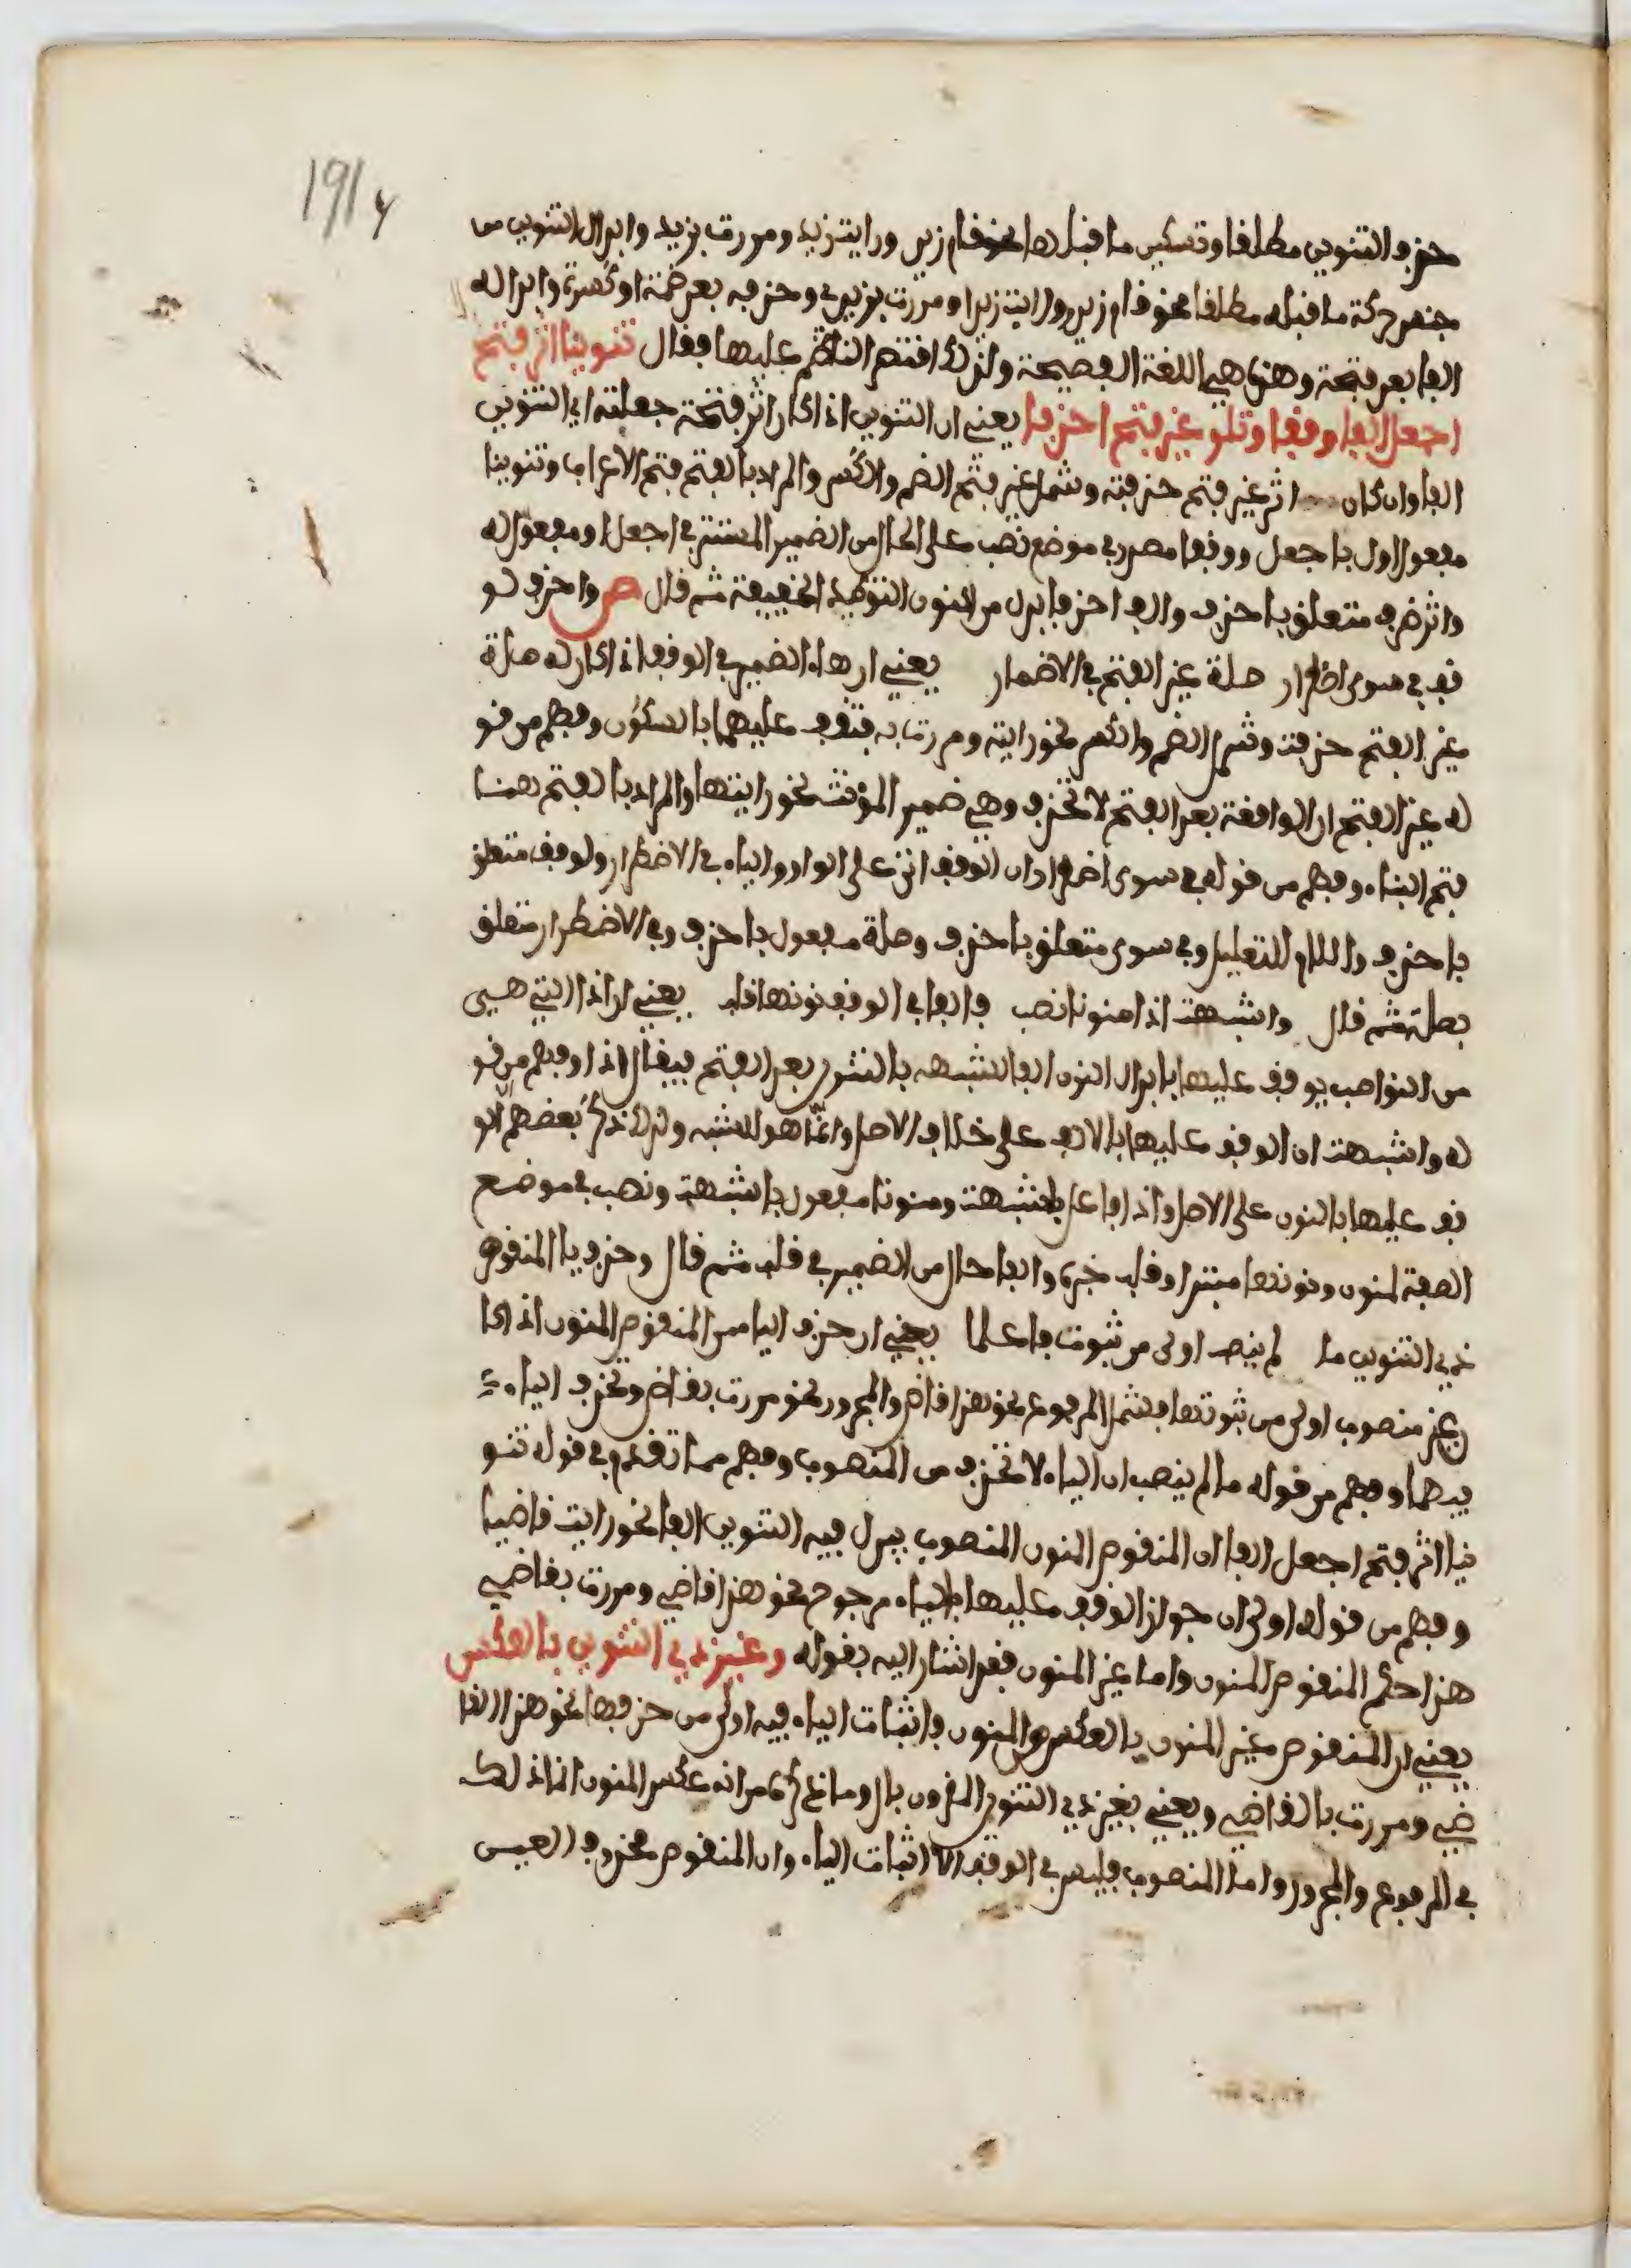 191 y
حذف التنوين مطلقا وتسكين ما قبلها نحو قام زيد ورايت زيد ومررت بزيد وابدال التنوين من
جنس حركة ما قبله مطلقا نحو قام زيدو ورايت زيدا ومررت بزيدي وحذفه بعد ضمة او كسرة وابداله
الفا بعد فتحة وهذه هي اللغة الفصيحة ولذلك اقتصر الناظم عليها فقال تنوينا اثر فتح
اجعل الفا وقفا وتلو غير فتح احذفا يعني ان التنوين اذا كان اثر فتحة جعلته اي التنوين
الفا وان كان اثر غير فتح حذفته وشمل غير فتح الضم والكسر والمراد بالفتح فتح الاعراب وتنوينا
مفعول اول باجعل ووقفا مصدر في موضع نصب على الحال من الضمير المستتر في اجعل او مفعول له
واثر ظرف متعلق باحذف والف احذفا بدل من النون التوكيد الخفيفة ثم قال ص واحذف لو
قف في سوى اضطرار صلة غير الفتح في الاضمار يعني ان هاء الضمير في الوقف اذا كان له صلة
غير الفتح حذفت وشمل الضم والكسر نحو رايته ومررت به فتقف عليهما بالسكون وفهم من قو
له غير الفتح ان الواقعة بعد الفتح لا تحذف وهي ضمير المؤنث نحو رايتها والمراد بالفتح هنا
فتح البناء وفهم من قوله في سوى اضطرار ان الوقف انى على الواو والياء في الاضطرار ولوقف متعلق
باحذف واللام للتعليل وفي سوى متعلق باحذف وصلة مفعول باحذف وفي الاضطرار متعلق
بصلة ثم قال واشبهت اذا منونا نصب فالفا في الوقف نونها قلب يعني ان اذا التي هي
من النواصب يوقف عليها بابدال النون الفا لشبهه بالتنوين بعد الفتح فيقال اذا وفهم من قو
له واشبهت ان الوقف عليها بالالف على خلاف الاصل وانما هو للشبه ولذلك ذكر بعضهم الو
قف عليها بالنون على الاصل واذا فاعل باشبهت ومنونا مفعول باشبهت ونصب في موضع
الصفة لمنون ونونها مبتدا وقلب خبره والفا حال من الضمير في قلب ثم قال وحذف يا المنقوص
ذي التنوين ما لم ينصب اولى من ثبوت فاعلما يعني ان حذف اليا من المنقوص المنون اذا كا
ن غير منصوب اولى من ثبوتها فشمل المرفوع نحو هذا قاض والمجرور نحو مررت بقاض وتحذف الياء
فيهما وفهم من قوله ما لم ينصب ان الياء لا تحذف من المنصوب وفهم مما تقدم في قوله تنو
ينا اثر فتح اجعل الفا ان المنقوص المنون المنصوب يبدل فيه التنوين الفا نحو رايت قاضيا
وفهم من قوله اولى ان جواز الوقف عليها بالياء مرجوح نحو هذا قاضي ومررت بقاضي
هذا حكم المنقوص المنون واما غير المنون فقد اشار اليه بقوله وغير ذي التنوين بالعكس
يعني ان المنقوص غير المنون بالعكس من المنون فاثبات الياء فيه اولى من حذفها نحو هذا القا
ضي ومررت بالقاضي ويعني بغير ذي التنوين المقرون بال وما ذكره من انه عكس المنون انما ذلك
في المرفوع والمجرور واما المنصوب فليس في الوقف الا اثبات الياء وان المنقوص محذوف العين